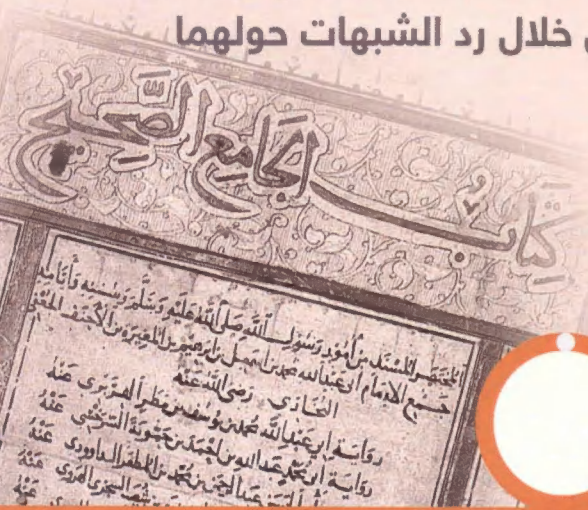 خلال رد الشبهات حولهما
كِتَابُ الجَامِعِ الصَّحِيحِ
المختصر المسند من أمور رسول الله صلى الله عليه وسلم وسننه وأيامه
جمع الإمام أبي عبدالله محمد بن إسمعيل بن إبرهيم بن المغيرة بن الأحنف
البخاري رضي الله عنه
رواية أبي عبد الله محمد بن يوسف بن مطر الفربري عنه
رواية أبي محمد عبدالله بن أحمد بن حمويه السرخسي عنه
عبد الرحمن بن محمد بن المظفر الداودي عنه
شعيب السجزي الهروي عنه